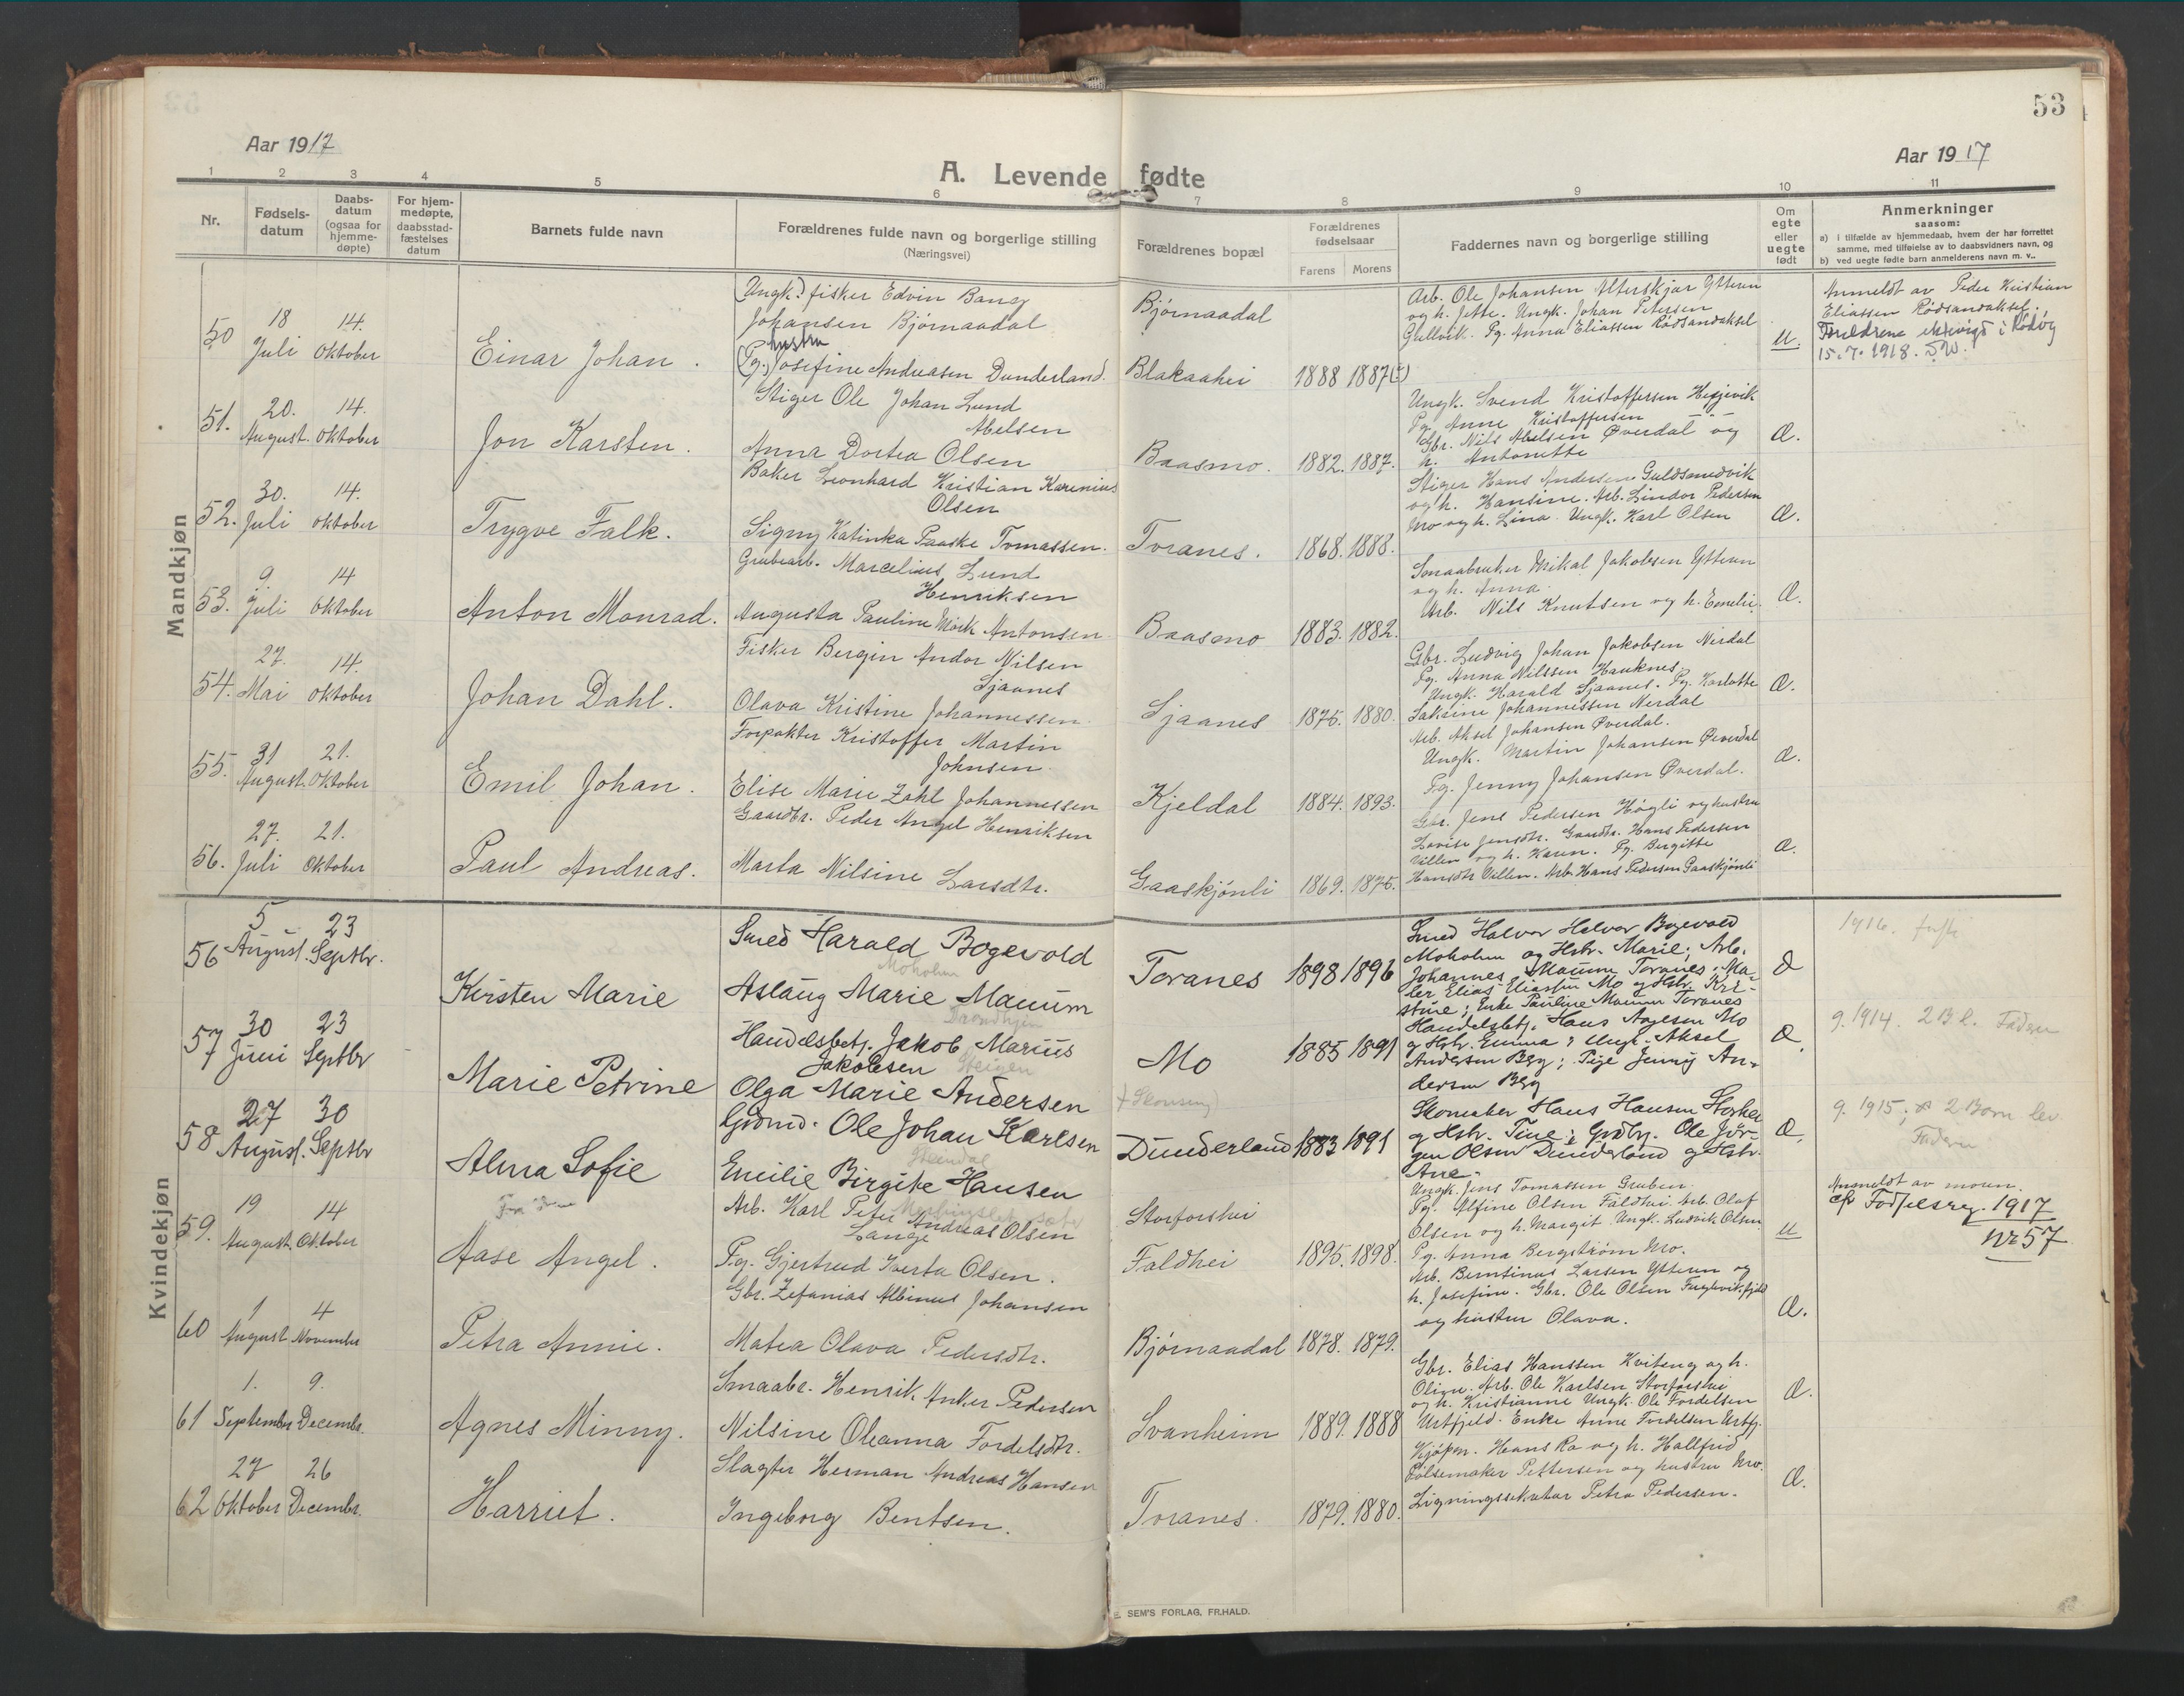 53
Aar 1917
Aar 1917
A. Levende fødte
1 2 3 4 5 6 7 8 9 10 11
Nr.
Fødsels-
datum
Daabs-
datum
(ogsaa for
hjemme-
døpte)
For hjem-
medøpte,
daabsstad-
fæstelses
datum
Barnets fulde navn
Forældrenes fulde navn og borgerlige stilling
(Næringsvei)
Forældrenes bopæl
Forældrenes
fødselsaar
Farens Morens
Faddernes navn og borgerlige stilling
Om
egte
eller
uegte
født
Anmerkninger
saasom:
a) i tilfælde av hjemmedaab, hvem der har forrettet
samme, med tilføielse av to daabsvidners navn, og
b) ved uegte fødte barn anmelderens navn m. v..
Mandkjøn
50
18 Juli
14. Oktober
Einar Johan.
(Ungk.) fisker Edvin Bang
Johansen Bjørnaadal
hustru
(Pg.) Josefine Andreasen Dunderland.
Bjørnaadal
Blakaahei
1888 1887
Arb. Ole Johansen Alterskjær Ytteren
og h. Jette. Ungk. Johan Petersen
Gullvik. Pg. Anna Eliassen Rødsandaksel
u.
Anmeldt av Peder Kristian
Eliassen Rødsandaksel.
Forældrene ektevigd i Rødøy
15.7.1918. S.W.
51.
20. August.
14. Oktober
Jon Karsten.
Stiger Ole Johan Lund
Abelsen
Anna Dortea Olsen
Baasmo.
1882. 1887.
Ungk. Svend Kristoffersen Hesjevik
Pg. Anne Kristoffersen -"-
Gbr. Nils Abelsen Øverdal og
h. Antonette
Æ.
52.
30. Juli
14. Oktober
Trygve Falk.
Baker Leonhard Kristian Karenius
Olsen
Signy Katinka Paaske Tomassen.
Toranes.
1868. 1888.
Stiger Hans Andersen Guldsmedvik
og h. Hansine. Arb. Lindor Pedersen
Mo og h. Lina. Ungk. Karl Olsen
Æ.
53.
9. Juli
14 Oktober
Anton Monrad.
Grubearb. Marcelius Lund
Henriksen
Augusta Pauline Mörk Antonsen
Baasmo
1883. 1882.
Smaabruker Mikal Jakobsen Ytteren
og h. Anna.
Arb. Nils Knutsen og h. Emelie.
Æ.
54.
27. Mai
14. Oktober
Johan Dahl.
Fisker Bergin Andor Nilsen
Sjaanes
Olava Kristine Johannessen.
Sjaanes
1875. 1880.
Gbr. Ludvig Johan Jakobsen Nerdal
Pg. Anna Nilssen Hauknes.
Ungk. Harald Sjaanes. Pg. Karlotte
Saksine Johannessen Nerdal
Æ.
55.
31 August.
21. Oktober
Emil Johan.
Forpakter Kristoffer Martin
Johnsen.
Elise Marie Zahl Johannessen
Kjeldal
1884. 1893.
Arb. Aksel Johansen Øverdal.
Ungk. Martin Johansen Øverdal
Pg. Jenny Johansen Øverdal.
Æ.
56.
27. Juli
21. Oktober
Paul Andreas.
Gaardbr. Peder Angel Henriksen
Marta Nilsine Larsdtr.
Gaaskjønli
1869. 1875.
Gbr. Jens Pedersen Høgli og hustru
Lovise Jensdtr. Gaardbr. Hans Pedersen
Villen og h. Karen. Pg. Birgitte
Hansdtr. Villen. Arb. Hans Pedersen Gaaskjønli
Æ.
Kvindekjøn
56
5 August.
23 Septbr.
Kirsten Marie
Smed Harald Bogevold
Moholmen
Aslaug Marie Mauum
Trondhjem
Toranes
1898 1896
Smed Halvor Halvor Bogevold
Moholmen og Hstr. Marie; Arb.
Johannes Mauum Toranes; Ma-
ler Elias Eliassen Mo og Hstr. Kri-
stine; Enke Pauline Mauum Toranes
Æ
1916.
57
30 Juni
23 Septbr
Marie Petrine
Handelsbetj. Jakob Marius
Jakobsen Steigen
Olga Marie Andersen
Mo
1885 1891
Handelsbetj. Hans Aagesen Mo
og Hstr. Emma; Ungk. Aksel
Andersen Berg; Pige Jenny An-
dersen Berg
Æ.
g. 1914. 2 B l. Faderen
58
27 August.
30 Septbr
Alma Sofie
Grdmd. Ole Johan Karlsen
Emilie Birgite Hansen
Dunderland
1883 1891
Skomaker Hans Hansen Storhei
og Hstr. Tine; Grdbr. Ole Jör-
gen Olsen Dunderland og Hstr.
Ane.
Æ.
g. 1915; 2 Born lev
Faderen
59.
19 August.
14 Oktober
Aase Angel.
Arb. Karl Peter Andreas Olsen
Lange
Pg. Gjertrud Iverta Olsen.
Storforshei
Faldhei
1895. 1898.
Ungk. Jens Tomassen Gruben.
Pg. Alfine Olsen Faldhei. Arb. Olaf
Olsen og h. Margit. Ungk. Ludvik Olsen
Pg. Anna Bergström Mo.
u
Anmeldt av moren.
cfr Fødselsreg. 1917
Nr 57
60
1 August
4 November
Petra Annie.
Gbr. Zefanias Albinus Johansen
Matea Olava Pedersdtr.
Bjørnaadal
1878. 1879.
Arb. Berntinus Larsen Ytteren og
h. Josefine. Gbr. Ole Olsen Fuglevikfjeld
og hustru Olava.
Æ.
61
1. September
9. Decembr.
Agnes Minny.
Smaabr. Henrik Anker Pedersen
Nilsine Oleanna Fordelsdtr.
Svanheim
1889. 1888
Gbr. Elias Hanssen Kviteng og h.
Oline. Arb. Ole Karlsen Storforshei
og h. Kristianne Ungk. Ole Fordelsen
Urtfjeld. Enke Anne Fordelsen Urtfj.
Æ.
62
27 Oktober
26 Decembr.
Harriet.
Slagter Herman Andreas Hansen
Ingeborg Bentsen.
Toranes.
1879. 1880.
Kjøpm. Hans Ra og h. Hallfrid
Pølsemaker Pettersen og hustru Mo.
Ligningssekretær Petra Pedersen.
Æ.
SEM'S FORLAG, FR.HALD.